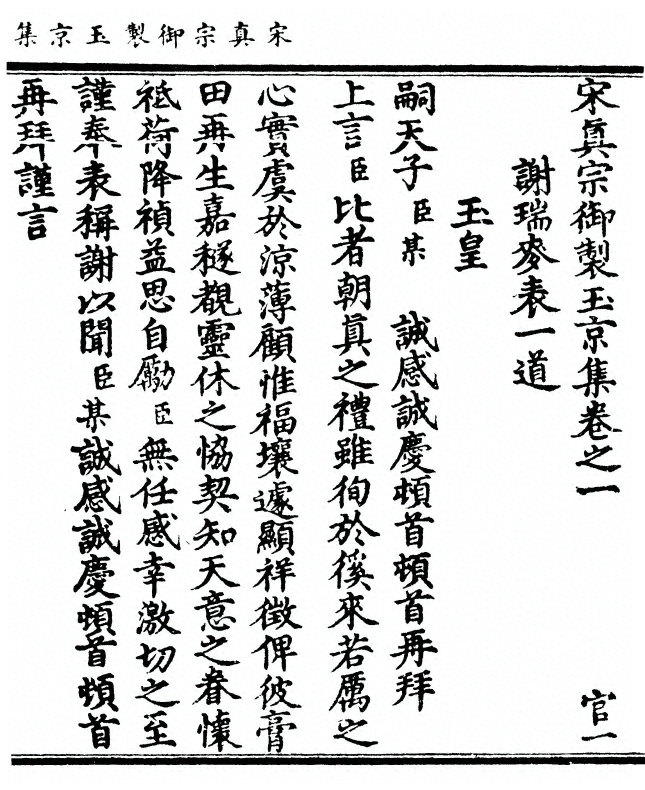 宋真宗御製玉京集
宋真宗御製玉京集卷之一　官一
謝瑞麥表一道
玉皇
嗣天子臣某　誠感誠慶頓首頓首再拜
上言臣比者朝真之禮雖徇於徯來若厲之
心實虞於涼薄顧惟福壤遽顯祥徵俾彼膏
田再生嘉穟覩靈休之恊契知天意之眷懷
祗荷降禎益思自勵臣無任感幸激切之至
謹奉表稱謝以聞臣某誠感誠慶頓首頓首
再拜謹言